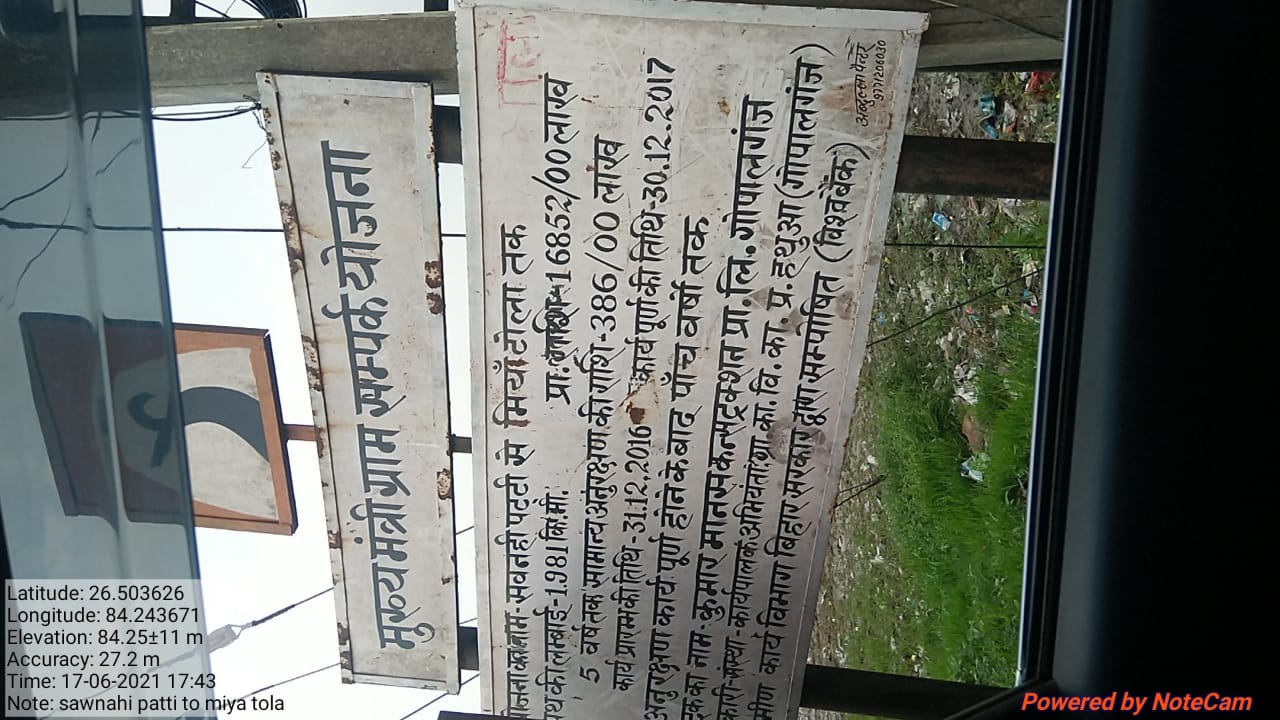 मुख्य मंत्री ग्राम सम्पर्क योजना
योजना का नाम-सवनही पट्टी से मियाँ टोला तक
पथ की लम्बाई-1.981 कि.मी. प्रा. राशि-16852/00 लाख
5 वर्ष तक सामान्य अनुरक्षण की राशि-386/00 लाख
कार्य प्रारम्भ की तिथि-31.12.2016 कार्य पूर्ण की तिथि-30.12.2017
अनुरक्षण कार्य पूर्ण होने के बाद पाँच वर्षो तक
का नाम-कुमार मानस कन्सट्रक्शन प्रा.लि.गोपालगंज
संस्था-कार्यपालक अभियंता ग्रा.का.वि.का.प्र.हथुआ (गोपालगंज)
कार्य विभाग बिहार सरकार द्वारा सम्पोषित (विश्वबैंक)
अब्दुल्ला पेन्टर
9771206030
Latitude: 26.503626
Longitude: 84.243671
Elevation: 84.25±11 m
Accuracy: 27.2 m
Time: 17-06-2021 17:43
Note: sawnahi patti to miya tola
Powered by NoteCam